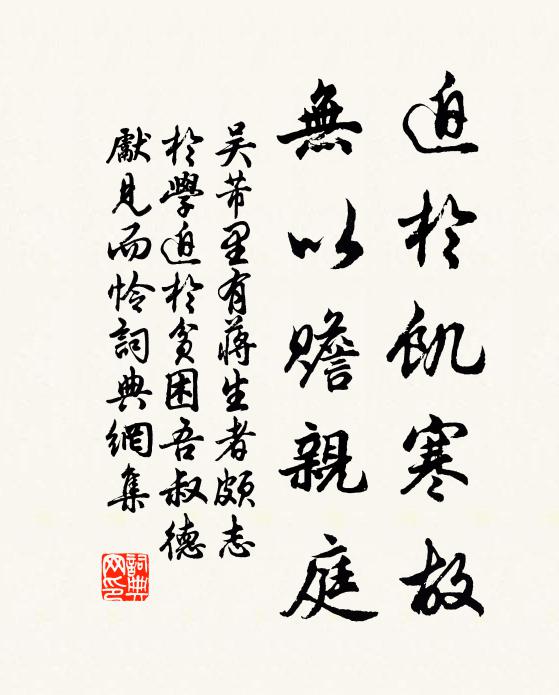 迫於飢寒故
無以贍親庭
吴芾里有蔣生者頗志
於學迫於貧困吾叔德
獻見而怜詞典網集
詞典網印